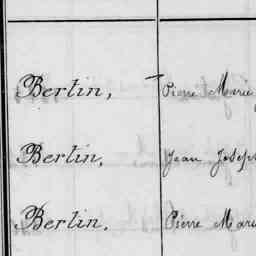 Bertin, Pierre Marie
Bertin, Jean Joseph
Bertin. Pierre Marie